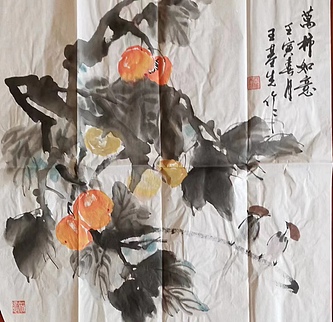 萬柿如意
壬寅春月
王春生作